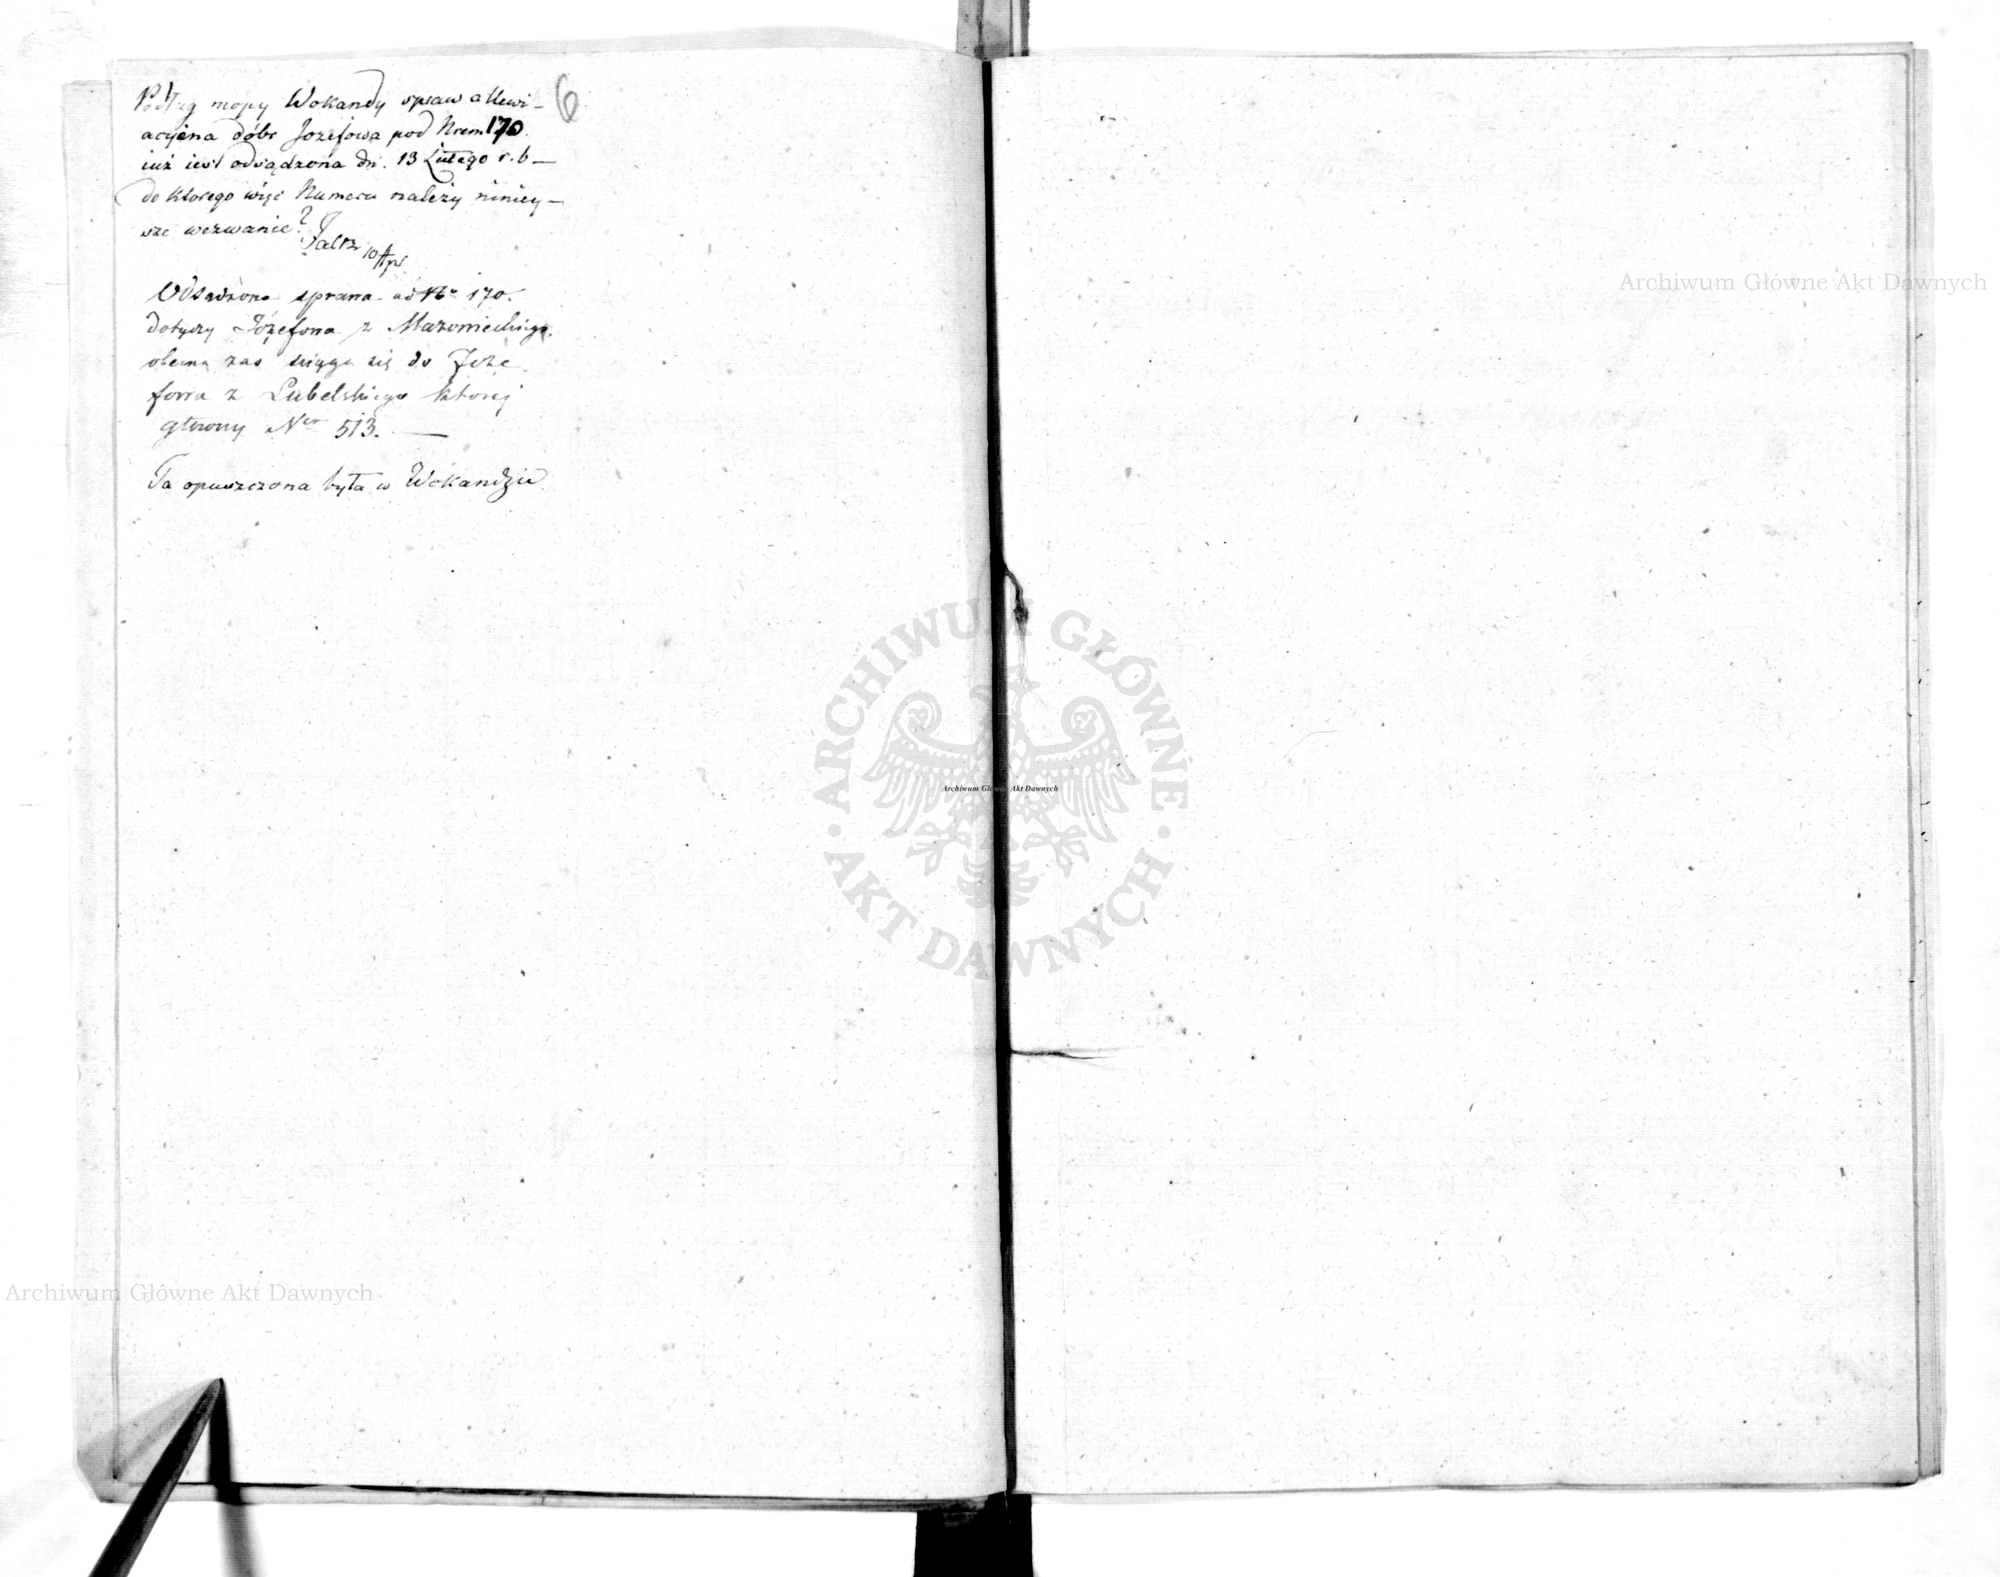 6
Podług mopy Wokandy spraw allewi-
acyina dóbr Jozefowa pod Nrem 170.
iuż iest odsądzona dn. 13 Lutego r. b-
do ktorego więc Numeru należy niniey-
sze wezwanie?
10 Apr
Odsądzona sprawa ad Nr 170.
dotyczy Józefowa z Mazowieckiego
obecna zas ściąga się do Józe
fowa z Lubelskiego ktorej
głowny Ner 513. —
Ta opuszczona była w Wokandzie.
Archiwum Główne Akt Dawnych
ARCHIWUM GŁÓWNE AKT DAWNYCH
Archiwum Główne Akt Dawnych
Archiwum Główne Akt Dawnych